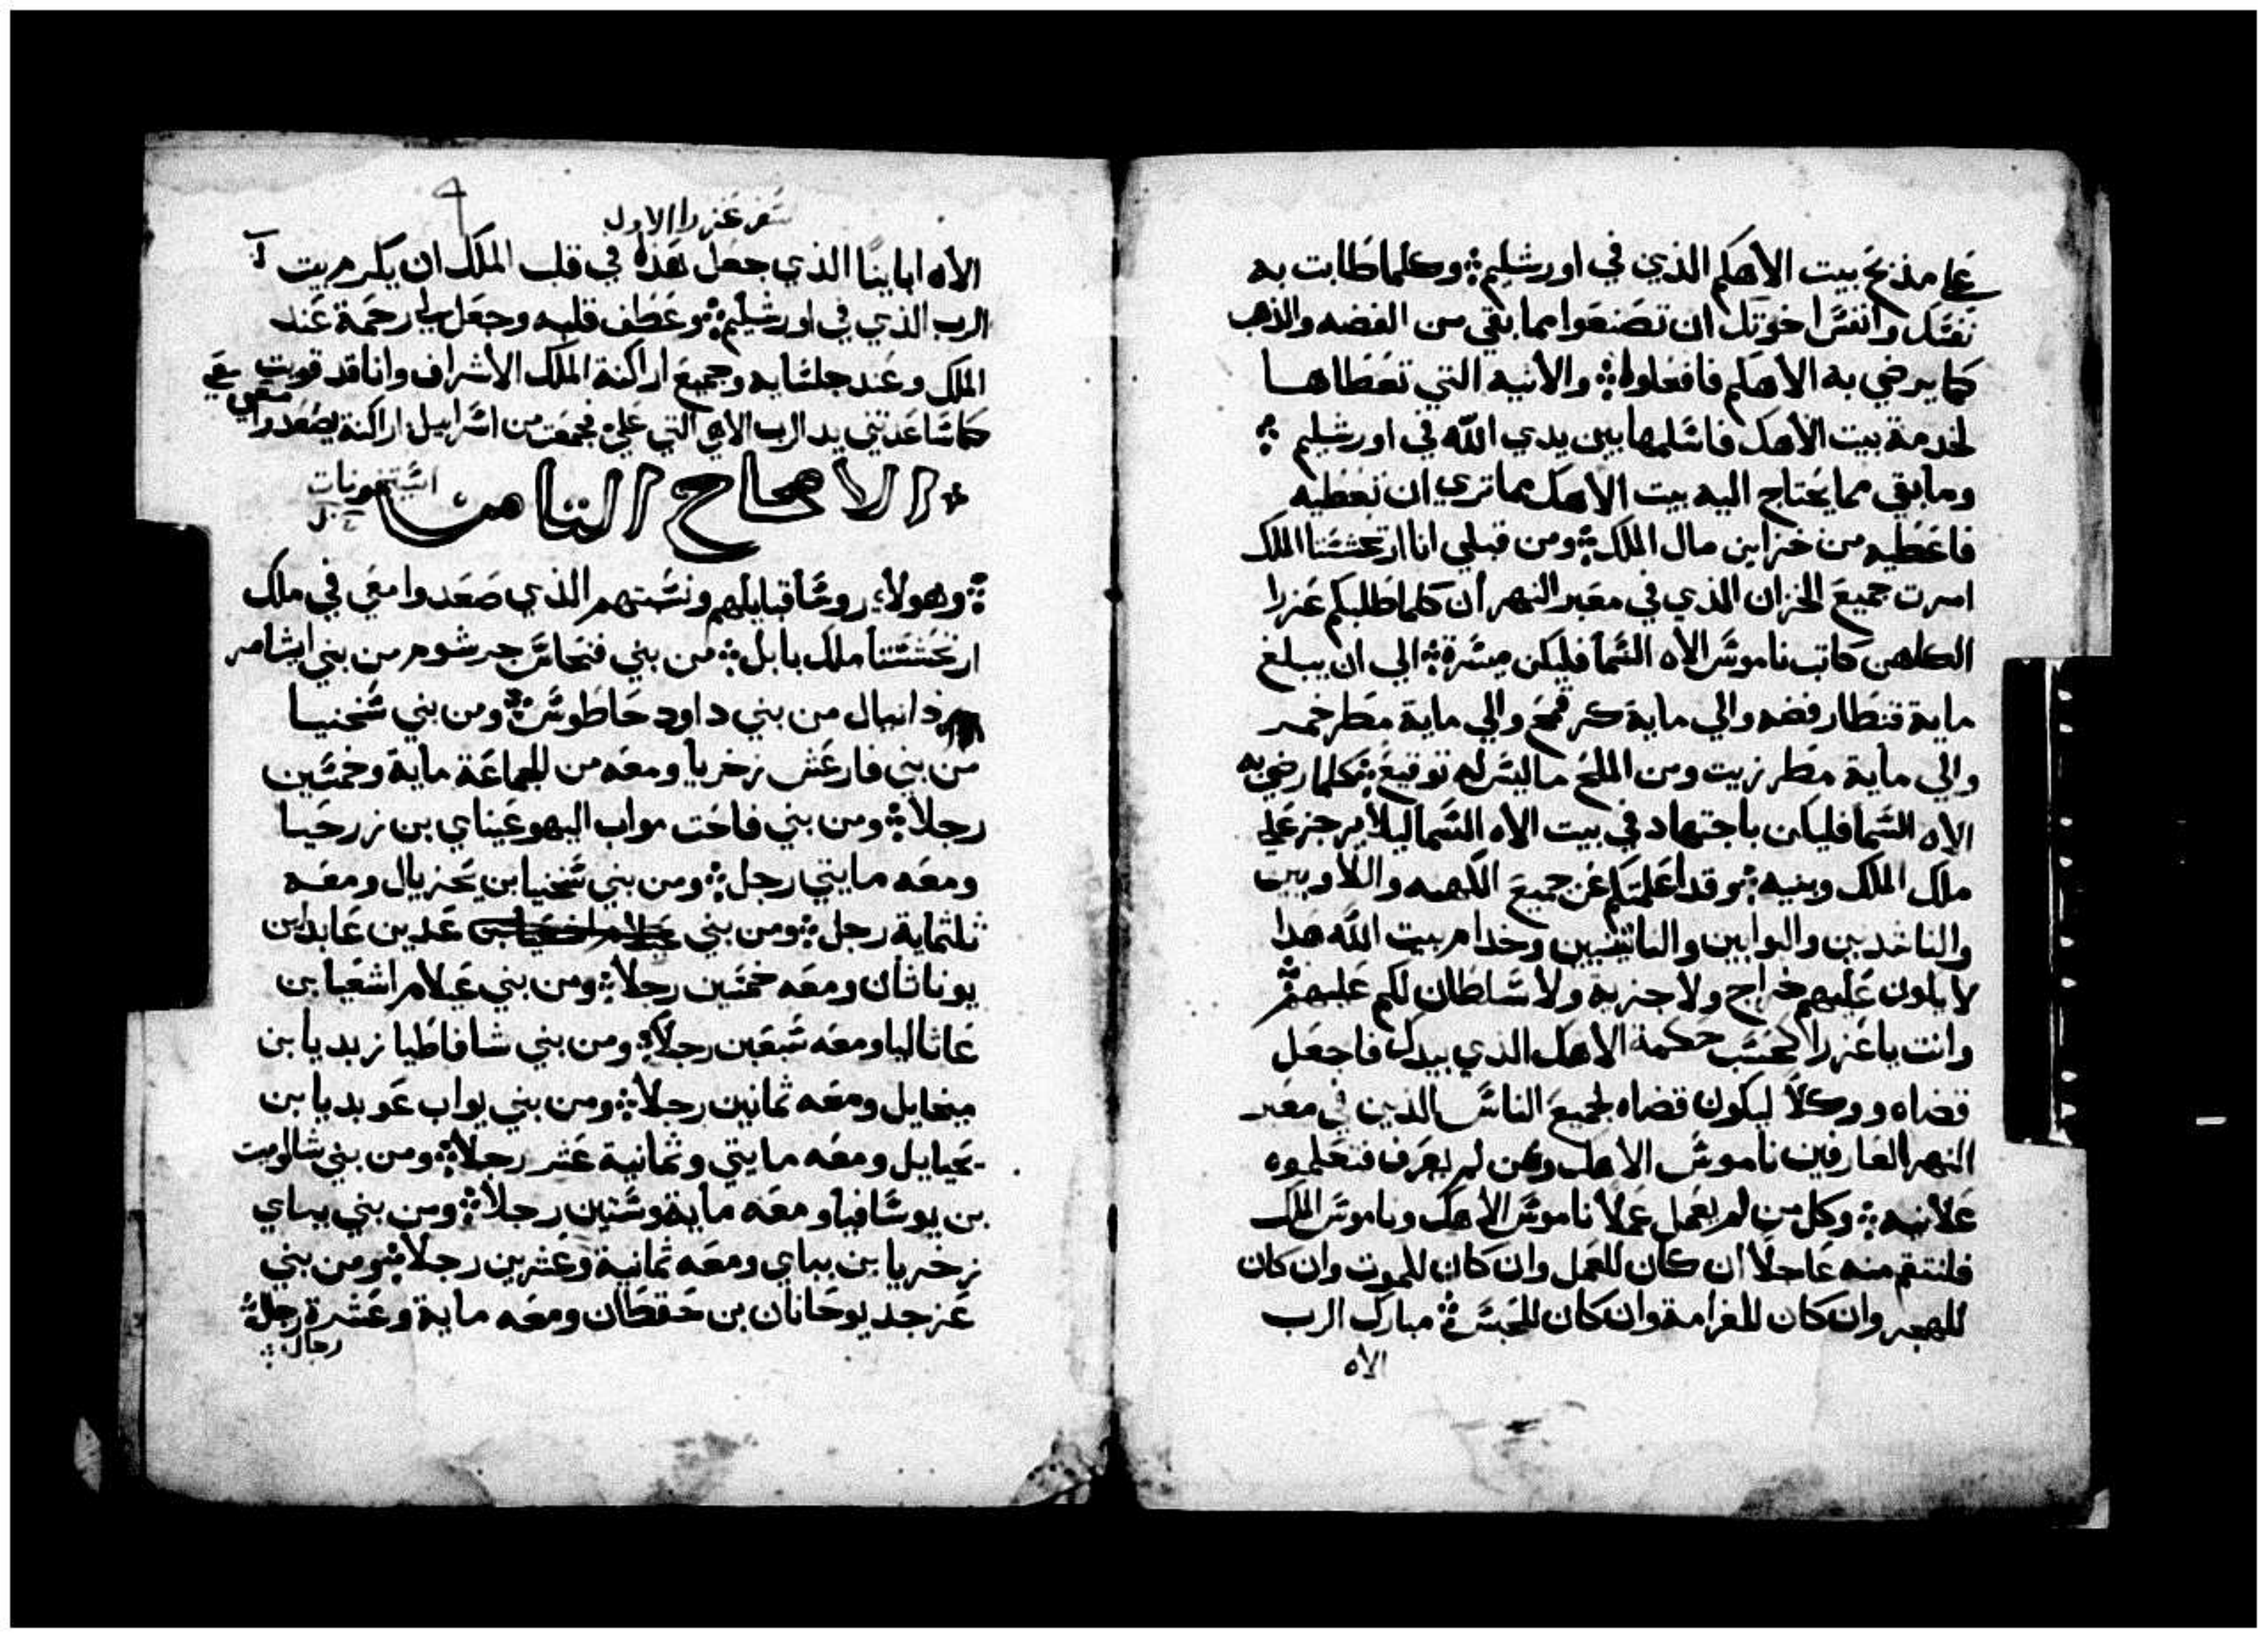 علي مذبح بيت الاهكم الذي في اورشليم وكلما طابت به
نفسك وانفس اخوتك ان تصنعوا مما بقي من الفضه والذهب
كما يرضي به الاهكم فافعلوا والانيه التي تعطاها
لخدمة بيت الاهك فاسلمها بين يدي الله في اورشليم
وما بقي مما يحتاج اليه بيت الاهك مما تري ان تعطيه
فاعطيه من خزاين مال الملك ومن قبلي انا ارتحششتا الملك
امرت جميع الخزان الذي في معبر النهر ان كلما طلبكم عزرا
الكاهن كاتب ناموس الاه السما فليكن ميسرة الي ان يبلغ
ماية قنطار فضه والي ماية كر قمح والي ماية مطر خمر
والي ماية مطر زيت ومن الملح ما ليس له توقيع كلما رضي به
الاه السما فليكن باجتهاد في بيت الاه السما ليلا يرجز علي
ملك الملك وبنيه وقد اعلمتكم عن جميع الكهنه واللاويين
والناشدين والبوابين والناتنيين وخدام بيت الله هدا
لا يكون عليهم خراج ولا جزية ولا سلطان لكم عليهم
وانت يا عزرا كحسب حكمة الاهك الذي بيدك فاجعل
قضاه ووكلا ليكون قضاه لجميع الناس الذين في معبر
النهر العارفين ناموس الاهك ومن لم يعرف فتعلموه
علانيه وكل من لم يعمل عملا ناموس الاهك وناموس الملك
فلنتقم منه عاجلا ان كان للعمل وان كان للموت وان كان
للهجر وان كان للغرامة وان كان للحبس مبارك الرب
الاه
سفر عزرا الاول
الاه اباينا الذي جعل هذه في قلب الملك ان يكرم بيت
الرب الذي في اورشليم وعطف قلبه وجعل لي رحمة عند
الملك وعند جلسايه وجميع اراكنة الملك الاشراف وانا قد قويت
كما ساعدتني يد الرب الاهي التي علي فجمعت من اسراييل اراكنة ليصعدوا معي
الاصحاح الثامن
وهولاء روسا قبايلهم ونسبتهم الذي صعدوا معي في ملك
ارتحششتا ملك بابل من بني فنحاس جرشوم من بني ايشامر
دانيال من بني داود حاطوس ومن بني شخنيا
من بني فارعش زخريا ومعه من الجماعة ماية وخمسين
رجلا ومن بني فاخت مواب اليهوعيناي بن زرحيا
ومعه مايتي رجل ومن بني شخنيا بن يحزيال ومعه
ثلثماية رجل ومن بني عدين عابد ابن
يوناثان ومعه خمسين رجلا ومن بني عيلام اشعيا بن
عاثاليا ومعه سبعين رجلا ومن بني شافاطيا زبديا بن
ميخايل ومعه ثمانين رجلا ومن بني يواب عوبديا بن
يحيايل ومعه مايتي وثمانية عشر رجلا ومن بني شالوميت
بن يوسافيا ومعه ماية وستين رجلا ومن بني بباي
زخريا بن بباي ومعه ثمانية وعشرين رجلا ومن بني
عزجد يوحانان بن حقطان ومعه ماية وعشرة رجل
رجال